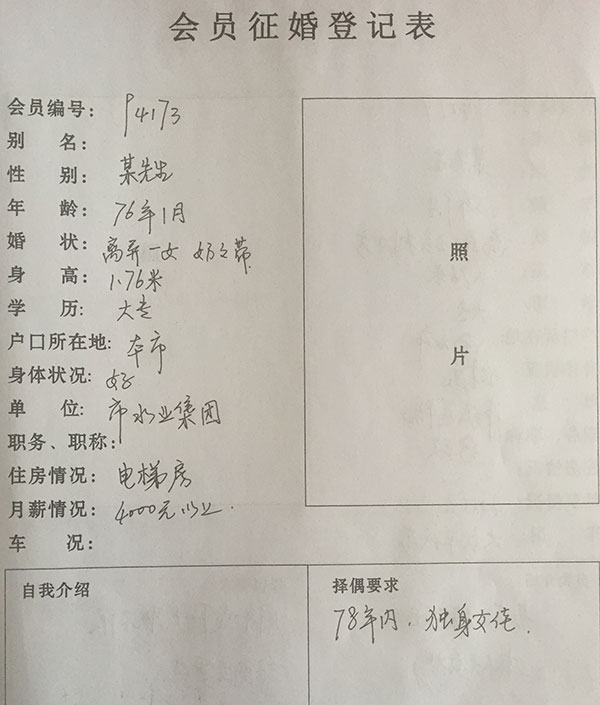 会员征婚登记表
会员编号： P4173
别 名：
性 别： 某先生
年 龄： 76年1月
婚 状： 离异一女 妈之带
身 高： 1.76米
学 历： 大专
户口所在地: 本市
身体状况: 好
单 位: 市水业集团
职务、职称:
住房情况： 电梯房
月薪情况： 4000元以上.
车 况：
照
片
自我介绍
择偶要求
78年内，独身女佳.